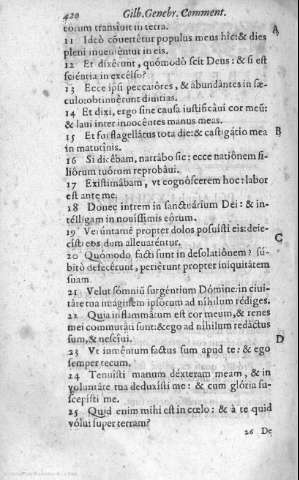 420 Gilb. Genebr. Comment.
eorum transiuit in terra. A
11 Ideò cõuertêtur populus meus hîc: & dies
pleni inuenientur in eis.
12 Et dixêrunt, quómodò scit Deus: & si est
sciéntia in excélso?
13 Ecce ipsi peccatóres, & abundántes in sæ-
culo: obtinuêrunt diuítias.
14 Et dixi, ergo sine causa iustificáui cor meũ:
& laui inter innocêntes manus meas.
15 Et fui flagellátus tota die: & castigátio mea B
in matutínis.
16 Si dicêbam, narrábo sic: ecce natiônem fi-
liôrum tuôrum reprobáui.
17 Existimâbam, vt cognóscerem hoc: labor
est ante me.
18 Donec intrem in sanctuárium Dei: & in-
télligam in nouíssimis eôrum.
19 Verúntamẽ propter dolos posuísti eis: deie- C
císti eos dum alleuaréntur.
20 Quómodo facti sunt in desolatiônem? sú-
bitò defecêrunt, periêrunt propter iniquitátem
suam
21 Velut sómniũ surgéntium Dómine: in ciui-
táte tua imáginẽ ipsórum ad níhilum rédiges.
22 Quia inflammátum est cor meum, & renes
mei commutáti sunt: & ego ad níhilum redáctus
sum, & nescíui.
23 Vt iuméntum factus sum apud te: & ego D
semper tecum.
24 Tenuísti manum déxteram meam, & in
voluntáte tua deduxísti me: & cum glória su-
scepísti me.
25 Quid enim mihi est in cœlo: & à te quid
vólui super terram?
26 De